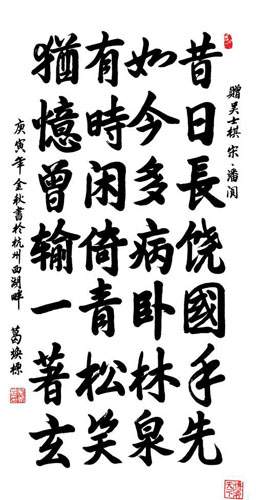 贈吴士棋 宋·潘阆
昔日長饶國手先
如今多病卧林泉
有時闲倚青松笑
猶憶曾输一著玄
庚寅年金秋書於杭州西湖畔 葛焕標